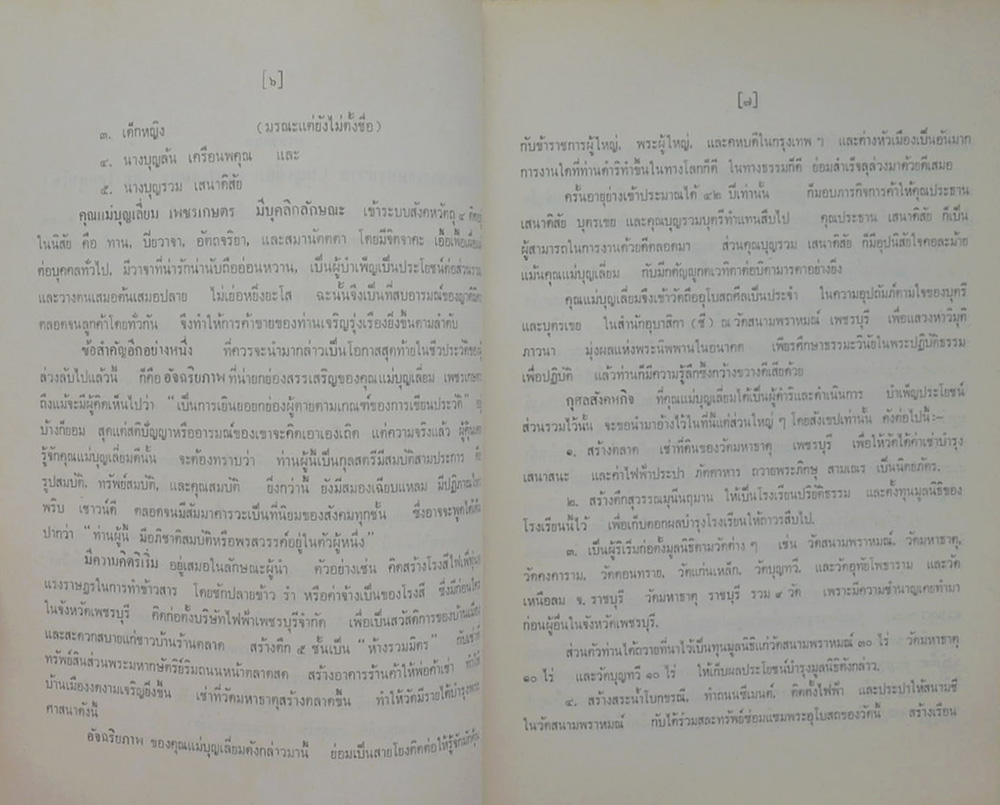 [๖]
๓. เด็กหญิง (มรณะแต่ยังไม่ตั้งชื่อ)
๔. นางบุญลัน เครือนพคุณ และ
๕. นางบุญรวม เสนาดิสัย
คุณแม่บุญเลี่ยม เพชรเกษตร มีบุคลิกลักษณะ เข้าระบบสังคหวัตถุ ๔ ติดอยู่
ในนิสัย คือ ทาน, ปิยวาจา, อัตถจริยา, และสมานัตตตา โดยมีจิตจาคะ เอื้อเฟื้อเผื่อแผ่
ต่อบุคคลทั่วไป, มีวาจาที่น่ารักน่านับถืออ่อนหวาน, เป็นผู้บำเพ็ญเป็นประโยชน์ต่อส่วนรวม
และวางตนเสมอต้นเสมอปลาย ไม่เย่อหยิ่งยะโส ฉะนั้นจึงเป็นที่สบอารมณ์ของญาติมิตร
ตลอดจนลูกค้าโดยทั่วกัน จึงทำให้การค้าขายของท่านเจริญรุ่งเรืองยิ่งขึ้นตามลำดับ
ข้อสำคัญอีกอย่างหนึ่ง ที่ควรจะนำมากล่าวเป็นโอกาสสุดท้ายในชีวประวัติของผู้
ล่วงลับไปแล้วนี้ ก็คืออัจฉริยภาพที่น่ายกย่องสรรเสริญของคุณแม่บุญเลี่ยม เพชรเกษตร
ถึงแม้จะมีผู้คิดเห็นไปว่า “เป็นการเยินยอยกย่องผู้ตายตามเกณฑ์ของการเขียนประวัติ”
บ้างก็ยอม สุดแต่สติปัญญาหรืออารมณ์ของเขาจะคิดเอาเองเถิด แต่ความจริงแล้ว ผู้คุ้นเคย
รู้จักคุณแม่บุญเลี่ยมดีนั้น จะต้องทราบว่า ท่านผู้นี้เป็นกุลสตรีมีสมบัติสามประการ คือ
รูปสมบัติ, ทรัพย์สมบัติ, และคุณสมบัติ ยิ่งกว่านี้ ยังมีสมองเฉียบแหลม มีปฏิภาณไหว
พริบ เชาวน์ดี ตลอดจนมีสัมมาคารวะเป็นที่นิยมของสังคมทุกชั้น ซึ่งอาจจะพูดได้เต็ม
ปากว่า “ท่านผู้นี้ มีอภิชาตสมบัติหรือพรสวรรค์อยู่ในตัวผู้หนึ่ง”
มีความคิดริเริ่ม อยู่เสมอในลักษณะผู้นำ ตัวอย่างเช่น คิดสร้างโรงสีไฟเพื่อทุ่น
แรงราษฎรในการทำข้าวสาร โดยชักปลายข้าว รำ หรือค่าจ้างเป็นของโรงสี ซึ่งมีก่อนใคร
ในจังหวัดเพชรบุรี คิดก่อตั้งบริษัทไฟฟ้าเพชรบุรีจำกัด เพื่อเป็นสวัสดิการของบ้านเมือง
และสะดวกสบายแก่ชาวบ้านร้านตลาด สร้างตึก ๕ ชั้นเป็น “ห้างรวมมิตร” กับเช่าที่
ทรัพย์สินส่วนพระมหากษัตริย์ริมถนนหน้าตลาดสด สร้างอาคารร้านค้าให้พ่อค้าเช่า ทำให้
บ้านเมืองงดงามเจริญยิ่งขึ้น เช่าที่วัดมหาธาตุสร้างตลาดขึ้น ทำให้วัดมีรายได้บำรุงพระ
ศาสนาดังนี้
อัจฉริยภาพ ของคุณแม่บุญเลี่ยมดังกล่าวมานี้ ย่อมเป็นสายโยงติดต่อให้รู้จักมักคุ้น
[๗]
กับข้าราชการผู้ใหญ่, พระผู้ใหญ่, และคหบดีในกรุงเทพ ฯ และต่างหัวเมืองเป็นอันมาก
การงานใดที่ท่านดำริทำขึ้นในทางโลกก็ดี ในทางธรรมก็ดี ย่อมสำเร็จลุล่วงมาด้วยดีเสมอ
ครั้นอายุย่างเข้าประมาณได้ ๔๒ ปีเท่านั้น ก็มอบภารกิจการค้าให้คุณประธาน
เสนาดิสัย บุตรเขย และคุณบุญรวมบุตรีทำแทนสืบไป คุณประธาน เสนาดิสัย ก็เป็น
ผู้สามารถในการงานด้วยดีตลอดมา ส่วนคุณบุญรวม เสนาดิสัย ก็มีอุปนิสัยใจคอละม้าย
แม้นคุณแม่บุญเลี่ยม กับมีกตัญญูกตเวทิตาต่อบิดามารดาอย่างยิ่ง
คุณแม่บุญเลี่ยมจึงเข้าวัดถืออุโบสถศีลเป็นประจำ ในความอุปถัมภ์ตามใจของบุตรี
และบุตรเขย ในสำนักอุบาสิกา (ชี) ณ วัดสนามพราหมณ์ เพชรบุรี เพื่อแสวงหาวิมุติ
ภาวนา มุ่งผลแห่งพระนิพพานในอนาคต เพียรศึกษาธรรมะวินัยในพระปฏิบัติธรรม
เพื่อปฏิบัติ แล้วท่านก็มีความรู้ลึกซึ้งกว้างขวางดีเสียด้วย
กุศลสังคหกิจ ที่คุณแม่บุญเลี่ยมได้เป็นผู้ดำริและดำเนินการ บำเพ็ญประโยชน์
ส่วนรวมไว้นั้น จะขอนำมาอ้างไว้ในที่นี้แต่ส่วนใหญ่ ๆ โดยสังเขปเท่านั้น ดังต่อไปนี้:—
๑. สร้างตลาด เช่าที่ดินของวัดมหาธาตุ เพชรบุรี เพื่อให้วัดได้ค่าเช่าบำรุง
เสนาสนะ และค่าไฟฟ้าประปา ภัตตาหาร ถวายพระภิกษุ สามเณร เป็นนิตยภัตร.
๒. สร้างตึกสุวรรณมุนีนฤมาน ให้เป็นโรงเรียนปริยัติธรรม และตั้งทุนมูลนิธิของ
โรงเรียนนี้ไว้ เพื่อเก็บดอกผลบำรุงโรงเรียนให้ถาวรสืบไป.
๓. เป็นผู้ริเริ่มก่อตั้งมูลนิธิตามวัดต่าง ๆ เช่น วัดสนามพราหมณ์, วัดมหาธาตุ,
วัดคงคาราม, วัดดอนทราย, วัดแก่นเหล็ก, วัดบุญทวี, และวัดอุทัยโพธาราม และวัด
เหนือสม จ. ราชบุรี วัดมหาธาตุ ราชบุรี รวม ๙ วัด เพราะมีความชำนาญเคยทำมา
ก่อนผู้อื่นในจังหวัดเพชรบุรี.
ส่วนตัวท่านได้ถวายที่นาไว้เป็นทุนมูลนิธิแก่วัดสนามพราหมณ์ ๓๐ ไร่ วัดมหาธาตุ
๑๐ ไร่ และวัดบุญทวี ๑๐ ไร่ ให้เก็บผลประโยชน์บำรุงมูลนิธิดังกล่าว.
๔. สร้างสระน้ำโบกขรณี, ทำถนนซีเมนต์, ติดตั้งไฟฟ้า และประปาให้สนามชี
ในวัดสนามพราหมณ์ กับได้ร่วมสละทรัพย์ซ่อมแซมพระอุโบสถของวัดนี้ สร้างเรือน